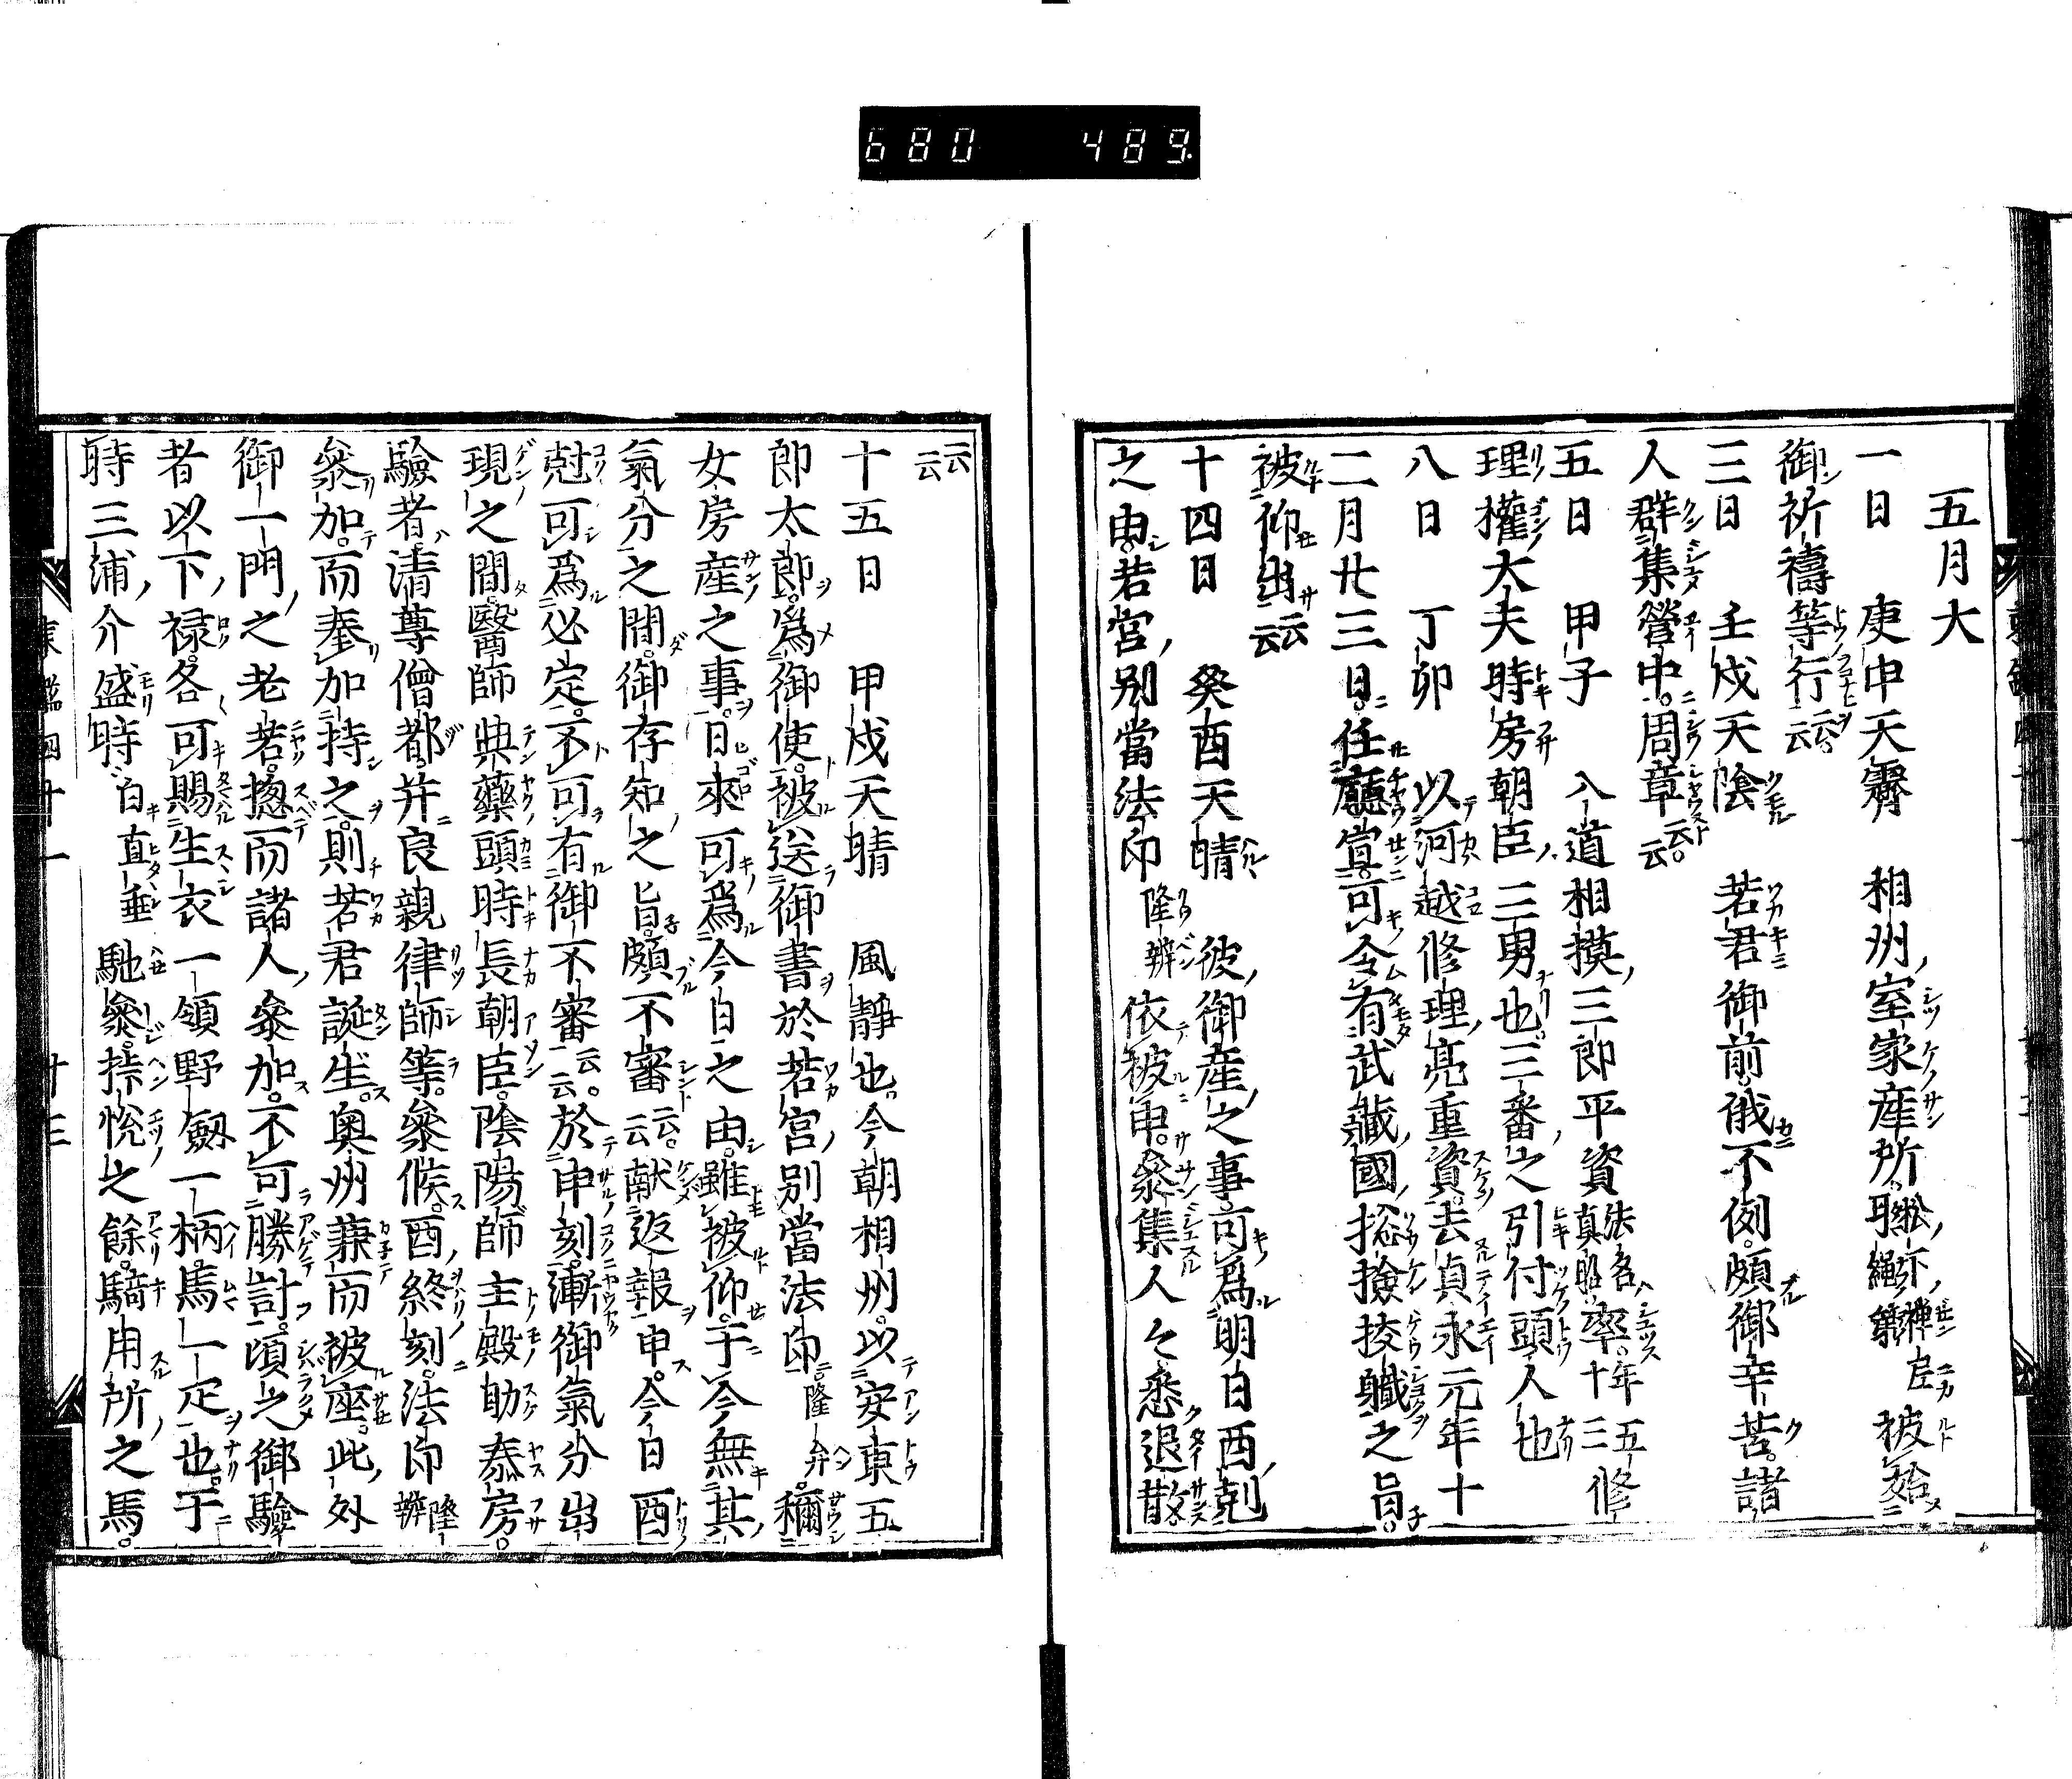 680 489.
五月大
一日 庚申天霽 相州室家産所松下禅 被始
御祈禱等行云云
三日 壬戌天陰 若君御前俄不例頗御辛苦諸
人群集營中周章云云
五日 甲子 入道相摸三郎平資 法名真昭 率年五十三修
理權大夫時房朝臣二男也三番之引付頭人也
八日 丁卯 以河越修理亮重資去貞永元年十
二月廿三日任廳宣可令有武藏國捴撿挍職之旨
被仰出云云
十四日 癸酉天晴 彼御産之事可爲明日酉剋
之由若宮別當法印隆辨依被申參集人々悉退散
云云
十五日 甲戌天晴 風靜也今朝相州以安東五
郎太郎爲御使被送御書於若宮別當法印隆弁稱
女房産之事日來可爲今日之由雖被仰于今無其
氣分之間御存知之旨頗不審云云献返報申今日酉
尅可爲必定不可有御不審云云於申刻漸御氣分出
現之間醫師典藥頭時長朝臣陰陽師主殿助泰房
驗者清尊僧都并良親律師等參候酉終刻法印隆辨
參加而奉加持之則若君誕生奥州兼而被座此外
御一門之老若惣而諸人參加不可勝計頃之御驗
者以下禄各可賜生衣一領野劔一柄馬一疋也于
時三浦介盛時白直垂馳參捧悅之餘騎用所之馬
東鑑四十一 廿三